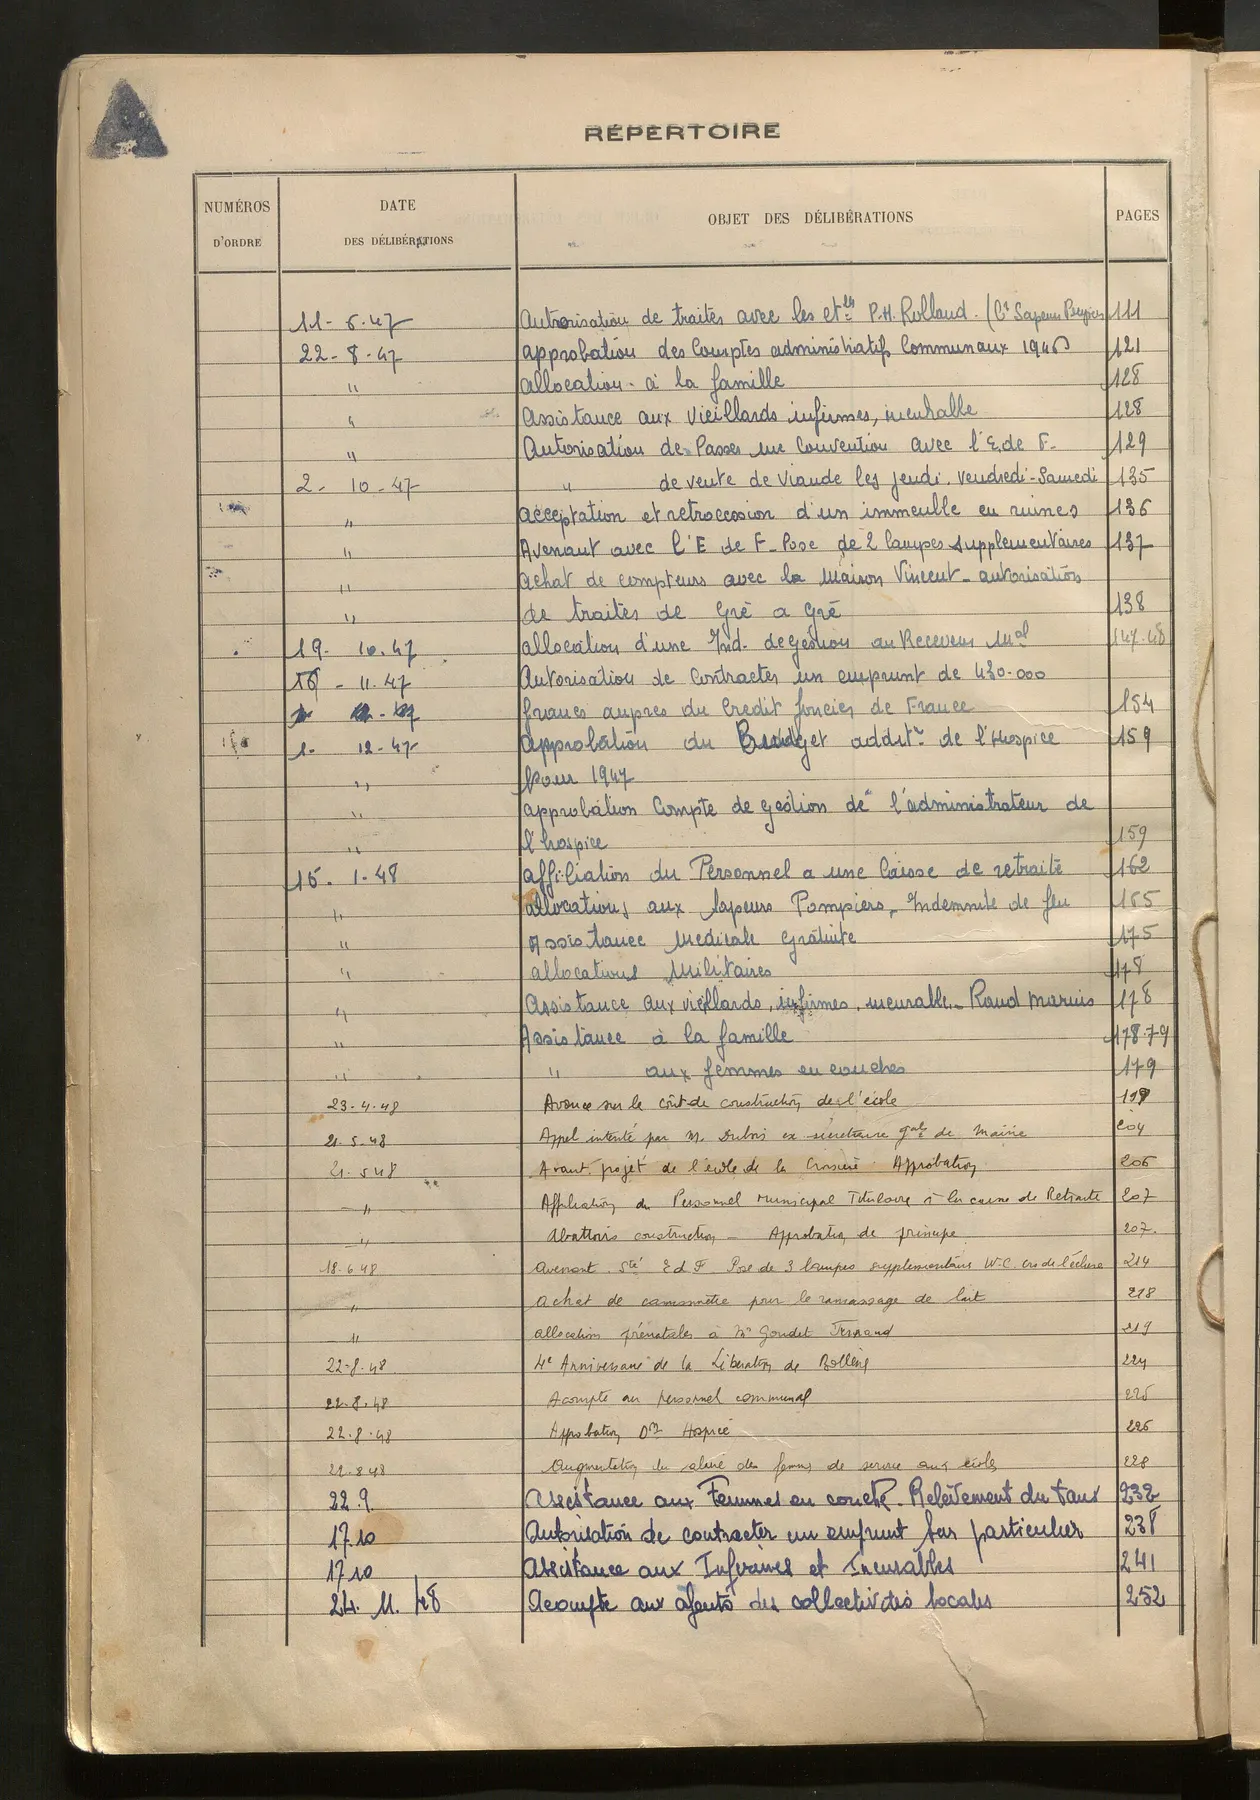 A
RÉPERTOIRE
NUMÉROS D'ORDRE DATE DES DÉLIBÉRATIONS OBJET DES DÉLIBÉRATIONS PAGES
11- 6-47 Autorisation de traités avec les etts P.H. Rolland. (Cie Sapeurs Pompiers 111
22- 8-47 approbation des Comptes administratifs Communaux 1946 121
" allocation à la famille 128
" Assistance aux Vieillards infirmes, incurable 128
" Autorisation de Passer une Convention avec l'E. de F- 129
2- 10-47 " de vente de Viande les jeudi. Vendredi-Samedi 135
" acceptation et retrocession d'un immeuble en ruines 136
" Avenant avec l'E de F- Pose de 2 lampes supplementaires 137
" achat de compteurs avec la Maison Vincent- autorisation
" de traites de Gré a Gré 138
19- 10.47 allocation d'une Ind. de gestion au Receveur Mal 147.48
16 - 11.47 Autorisation de Contracter un emprunt de 430.000
francs aupres du Credit foncier de France 154
1- 12-47 approbation du Budget addit. de l'Hospice 159
" pour 1947
" approbation Compte de gestion de l'administrateur de
" l'hospice 159
15. 1-48 affiliation du Personnel a une Caisse de retraite 162
" allocations aux Sapeurs Pompiers- Indemnite de feu 165
" Assistance Medicale gratuite 175
" allocations Militaires 178
" Assistance aux vieillards, infirmes, incurable- Raud Marius 178
" Assistance à la famille 178.79
" " aux femmes en couches 179
23-4-48 Avance sur le coût de construction de l'école 199
21-5-48 Appel intenté par M. Dubois ex secretaire gal de Mairie 204
21-5-48 Avant projet de l'école de la Croisière Approbation 206
" Affiliation du Personnel Municipal Titulaire à la caisse de Retraite 207
" Abattoirs construction - Approbation de principe 207.
18.6.48 avenant Sté E d F Pose de 3 lampes supplémentaires W-C. crs de l'écluse 214
" achat de camionnette pour le ramassage de lait 218
" allocations prénatales à Mr Goudet Fernand 219
22-8-48 4e Anniversaire de la Libération de Bollène 224
22.8.48 Acompte au personnel communal 225
22.8.48 Approbation Don Hospice 226
22.8.48 Augmentation du salaire des femmes de service aux écoles 228
22.9 Assistance aux Femmes en couche. Relèvement du taux 232
17.10 Autorisation de contracter un emprunt par particulier 238
17.10 Assistance aux Infirmes et Incurables 241
24. 11. 48 Acompte aux agents des collectivités locales 252